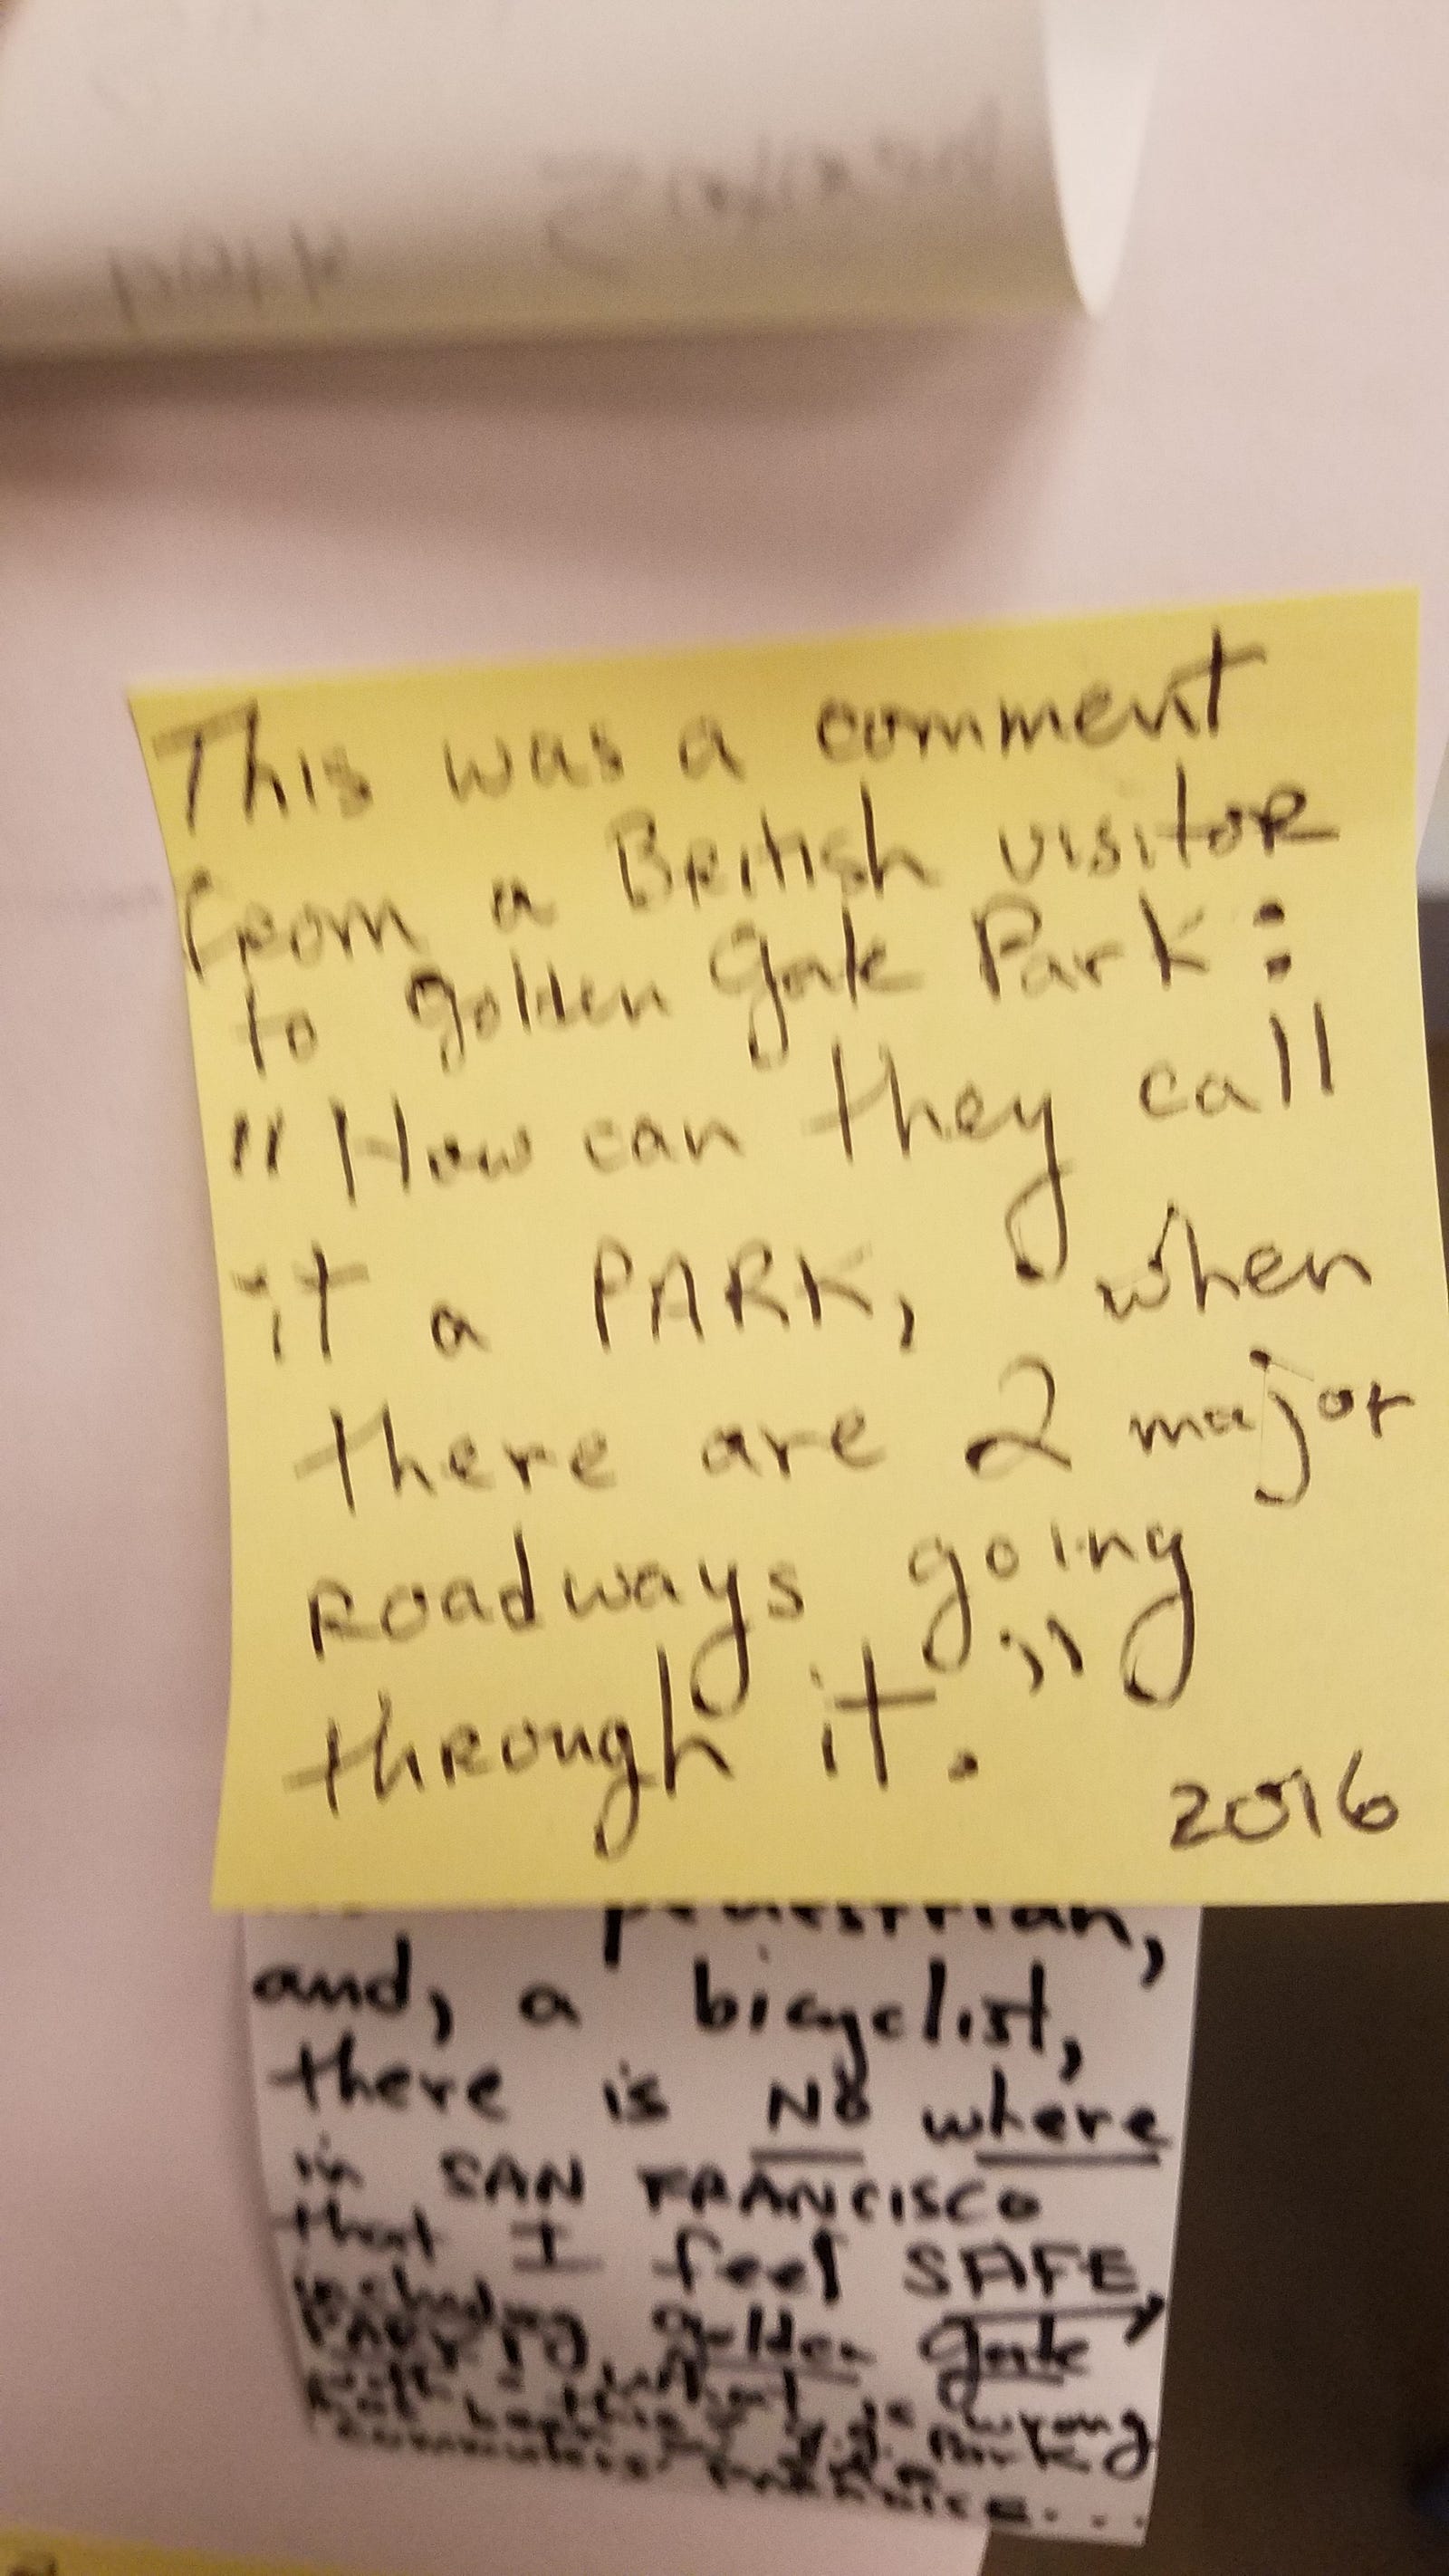 This was a comment
from a British visitor
to golden gate Park:
"How can they call
it a PARK, when
there are 2 major
roadways going
through it."
2016
pedestrian,
and, a bicyclist,
there is NO where
in SAN FRANCISCO
that I feel SAFE,
including golden gate
PARK
what is wrong
with this
commuters' PARADISE...